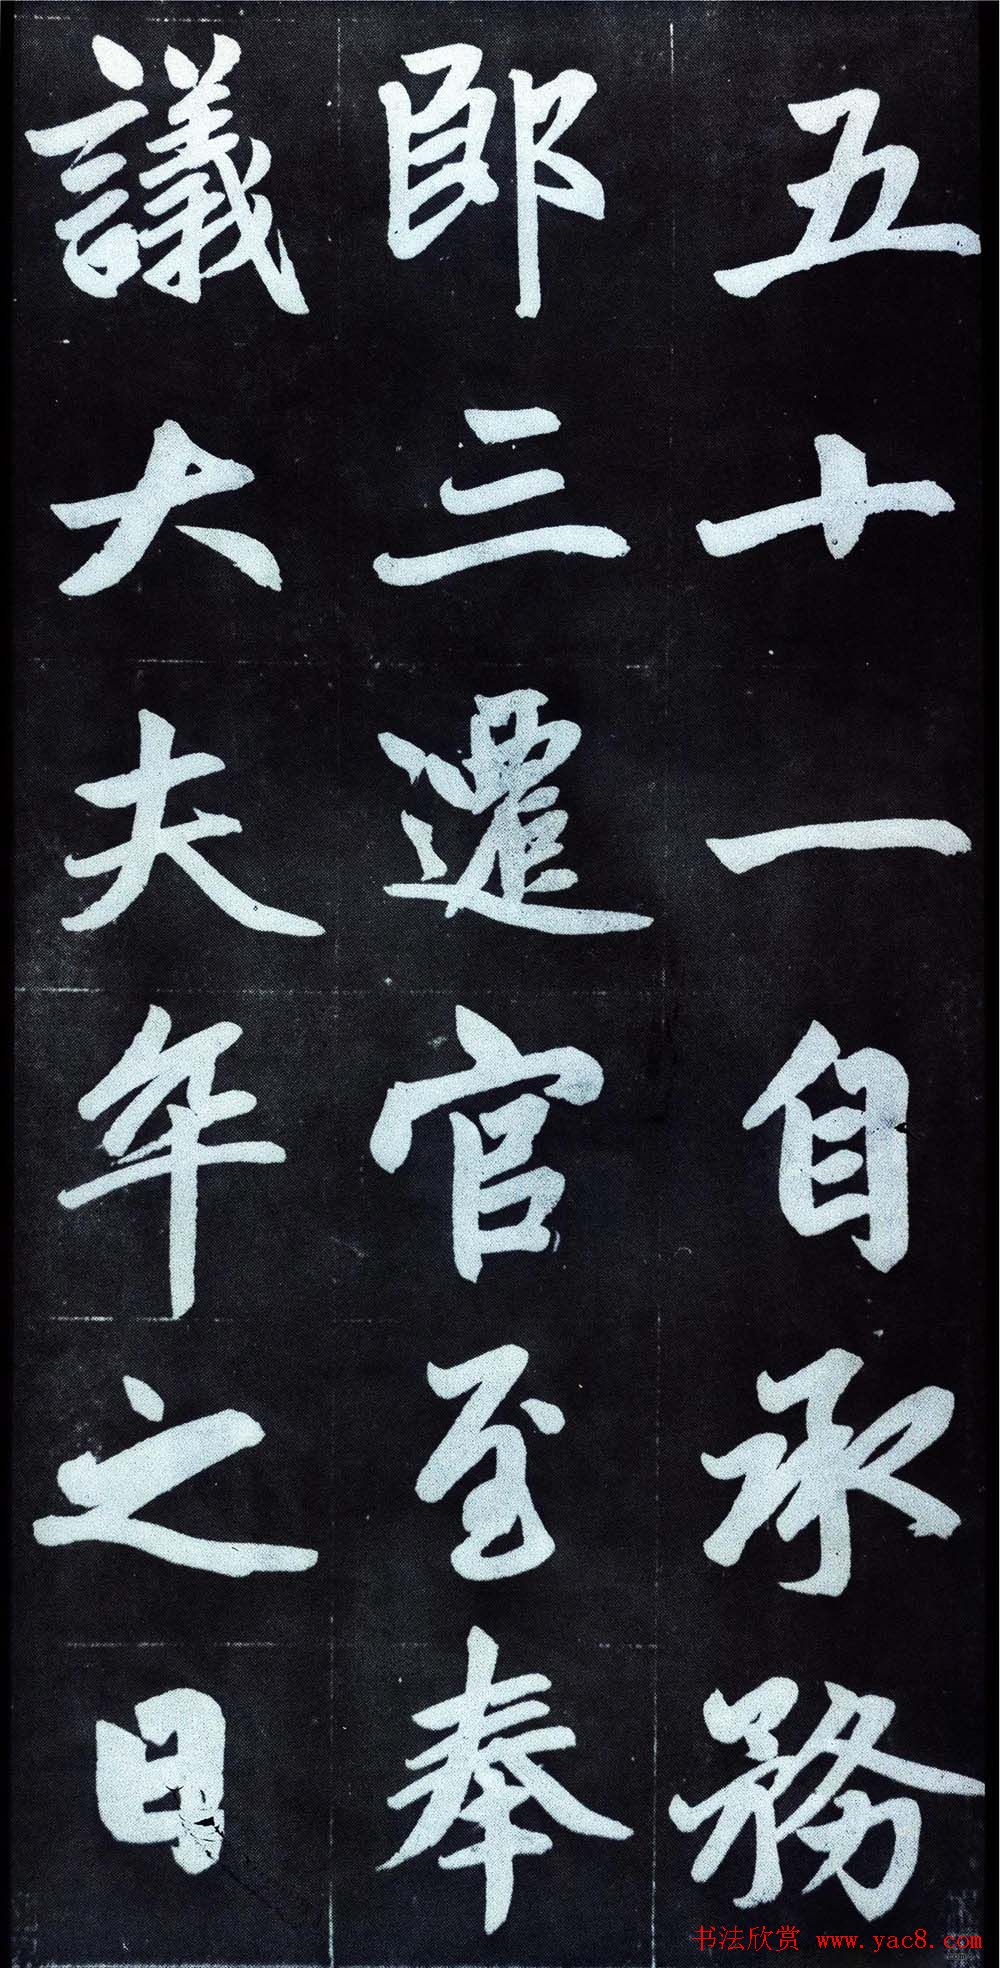 五十一自承務
郎三遷官至奉
議大夫年之日
书法欣赏 www.yac8.com